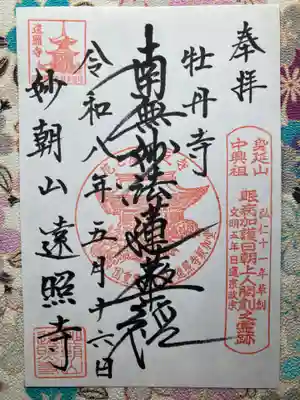 奉拝
身延山
中興祖
弘仁十一年草創
眼病加護日朝上人開創之霊跡
文明五年日蓮宗改宗
牡丹寺
南無妙法蓮華経
令和八年五月十六日
妙朝山遠照寺
遠照寺